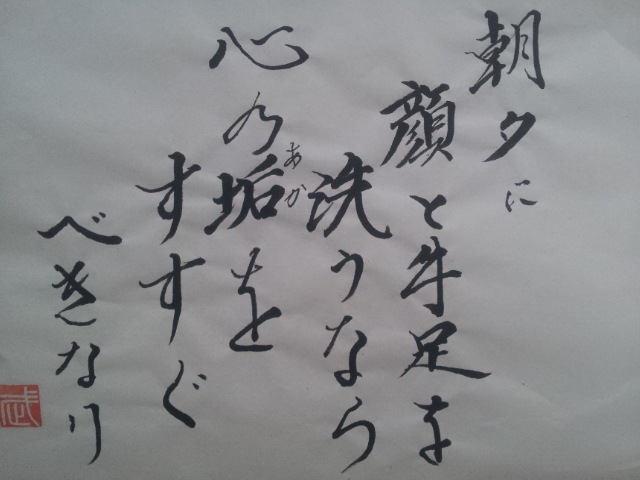 朝夕に
顔と手足を
洗うなら
心の垢を
あか
すすぐ
べきなり
武